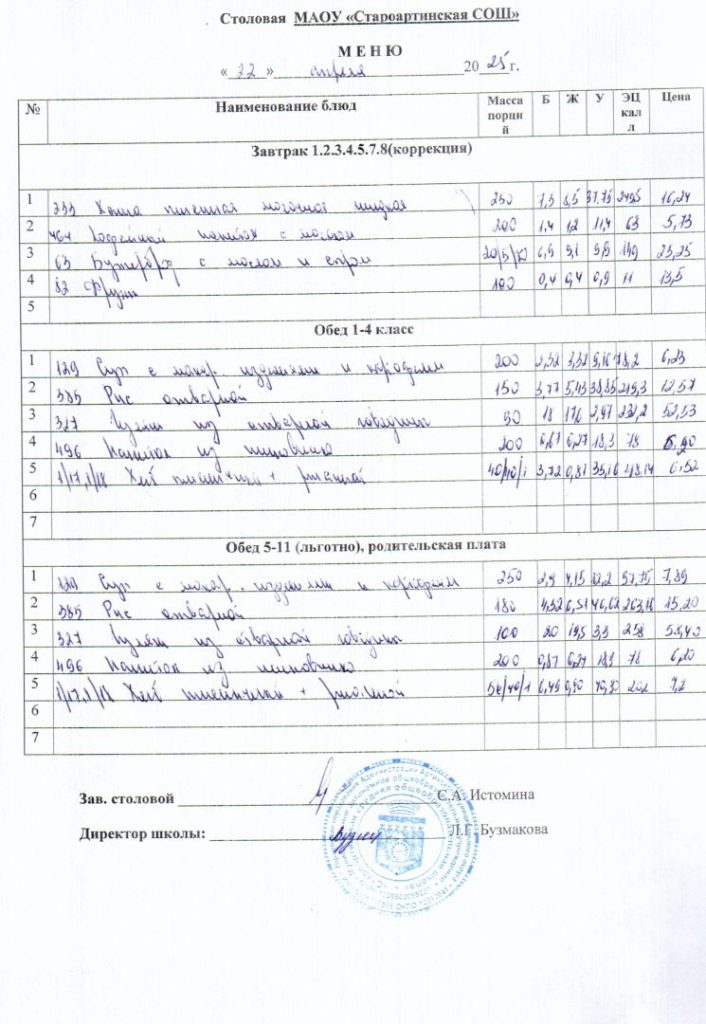 Столовая МАОУ «Староартинская СОШ»
МЕНЮ
« 22 » апреля 20 25 г.
№ Наименование блюд Масса порций Б Ж У ЭЦ калл Цена
Завтрак 1.2.3.4.5.7.8(коррекция)
1 233 Каша пшенная молочная жидкая 250 7,5 8,5 37,75 249,5 16,24
2 464 Кофейный напиток с молоком 200 1,4 1,2 11,4 63 5,73
3 63 Бутерброд с маслом и сыром 20/5/10 6,9 9,1 9,9 149 23,25
4 82 Фрукт 100 0,4 0,4 0,9 11 13,5
5
Обед 1-4 класс
1 129 Суп с макар. изделиями и картофелем 200 2,32 3,32 9,16 78,2 6,23
2 385 Рис отварной 150 3,77 5,43 38,85 219,3 12,57
3 327 Гуляш из отварной говядины 90 18 17,6 2,97 232,2 52,53
4 496 Напиток из шиповника 200 0,67 0,27 18,3 78
5 1/17,1/18 Хлеб пшеничный + ржаной 40/40/1 3,72 0,81 35,16 6,52
6
7
Обед 5-11 (льготно), родительская плата
1 129 Суп с макар. изделиями и картофелем 250 2,9 4,15 97,75 7,89
2 385 Рис отварной 180 4,52 6,51 46,62 263,16 15,20
3 327 Гуляш из отварной говядины 100 20 19,5 3,3 258 58,40
4 496 Напиток из шиповника 200 0,67 0,27 18,3 78 6,20
5 1/17,1/18 Хлеб пшеничный + ржаной 50/40/1 6,49 0,90 40,30 202 7,2
6
7
Зав. столовой С.А. Истомина
Директор школы: Л.Г. Бузмакова